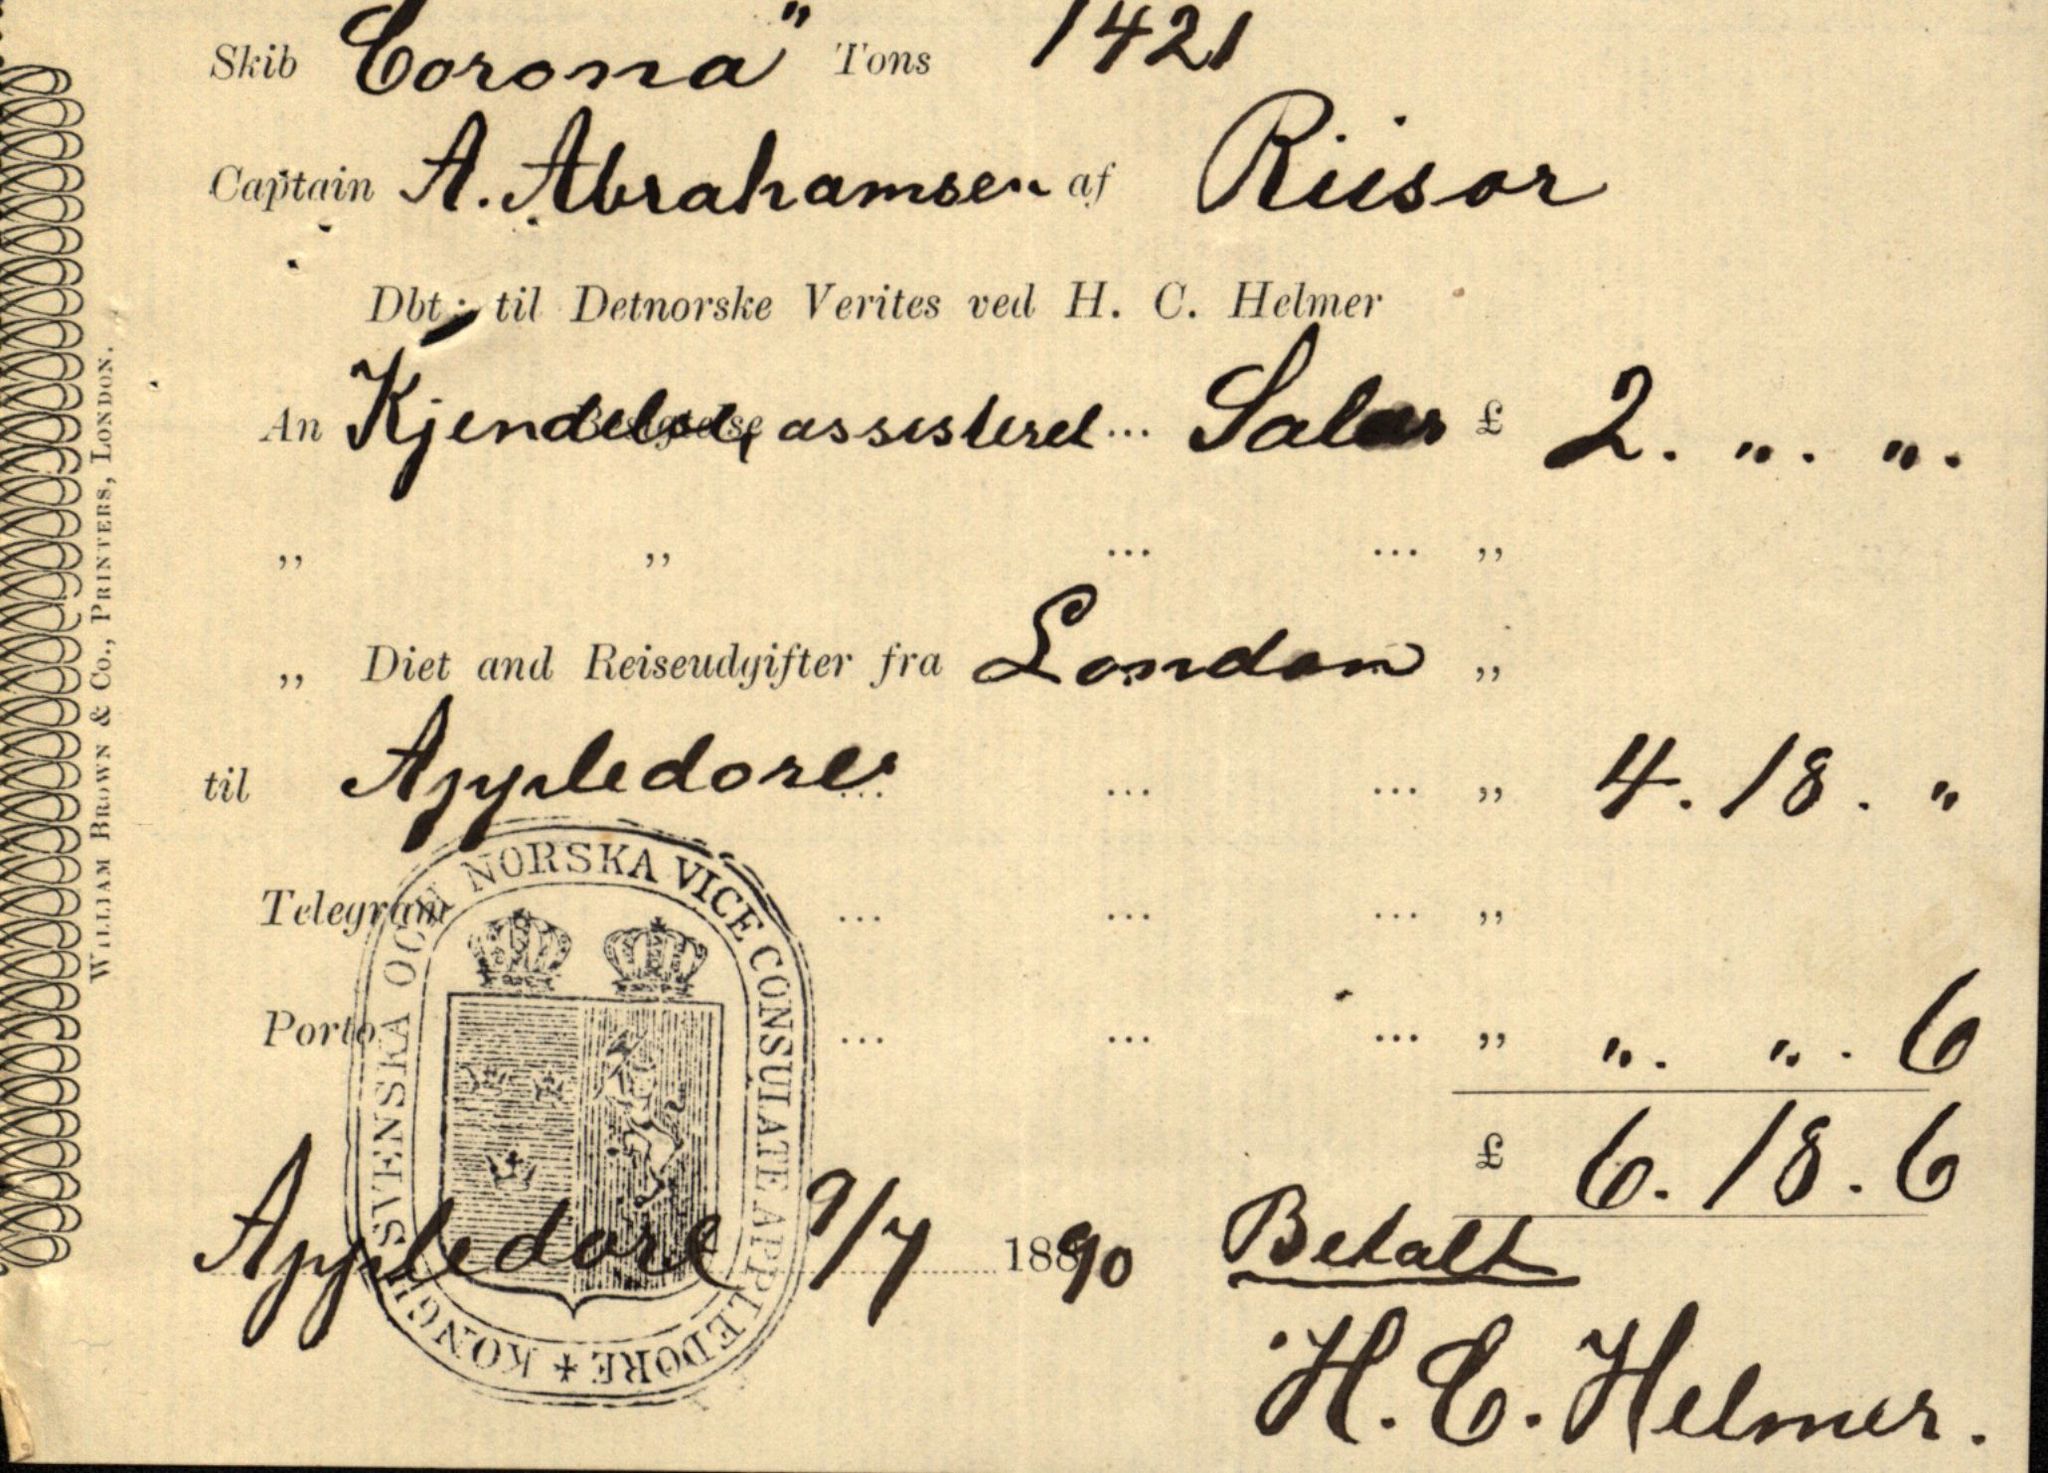 Skib Corona" Tons 1421
Captain A. Abrahamsen af Riisor
Dbt: til Detnorske Verites ved H. C. Helmer
An Kjendelse, assisteret ... Salær £ 2. ". ".
" " ... ... "
" Diet and Reiseudgifter fra London "
til Appledore ... ... ... " 4. 18. "
Telegram ... ... ... "
Porto ... ... ... " ". ". 6
£ 6. 18. 6
Appledore 9/7 1890 Betalt
H. C. Helmer.
KONGL SVENSKA OCH NORSKA VICE CONSULATE APPLEDORE
WILLIAM BROWN & CO., PRINTERS, LONDON.